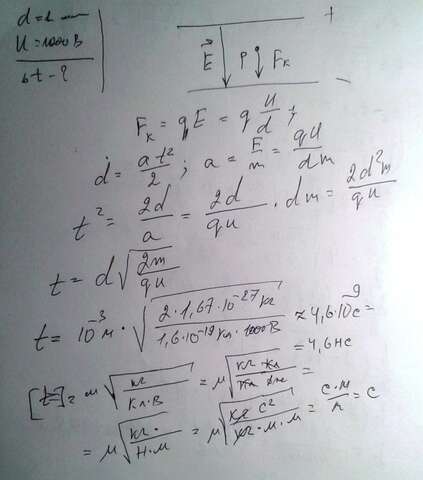 d = 1 мм
U = 1000 В
Δt - ?
+
E P Fк
−
Fк = qE = q U/d ;
d = at²/2 ; a = F/m = qU/dm
t² = 2d/a = 2d/qU · dm = 2d²m/qU
t = d √(2m/qU)
t = 10⁻³ м · √(2 · 1,67 · 10⁻²⁷ кг / 1,6 · 10⁻¹⁹ Кл · 1000 В) ≈ 4,6 · 10⁻⁹ с =
= 4,6 нс
[t] = м √(кг / Кл · В) = м √(кг · Кл / Кл · Дж) =
= м √(кг / Н · м) = м √(кг с² / кг · м · м) = с · м / м = с